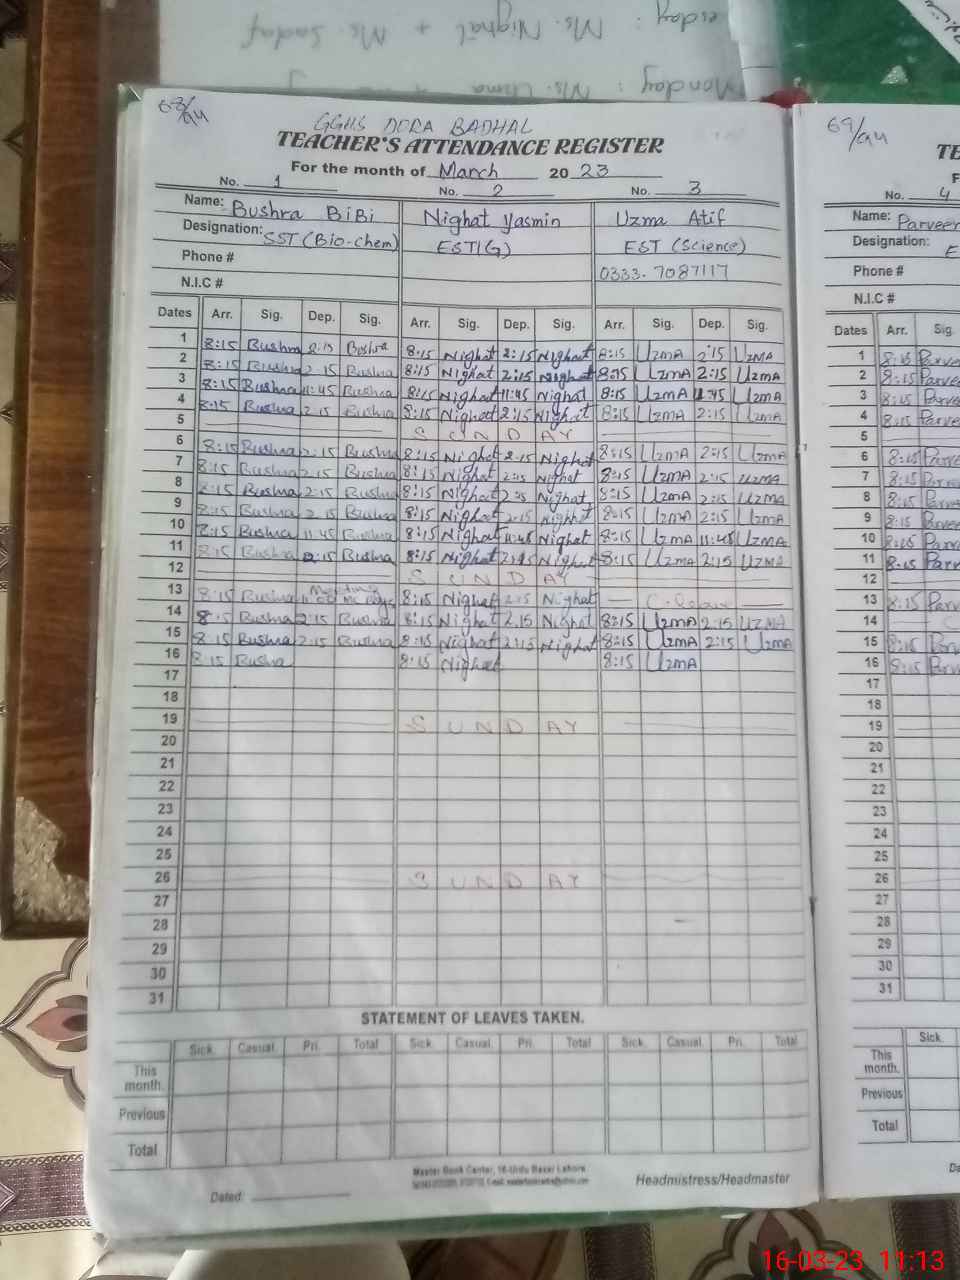 esday : Ms. Nighat + Ms. Sadaf
Monday : Ms. Uzma
GGHS DORA BADHAL
TEACHER'S ATTENDANCE REGISTER
For the month of March 2023
No. 1 No. 2 No. 3
Name: Bushra BiBi Nighat Yasmin Uzma Atif
Designation: SST (Bio-chem) EST(G) EST (Science)
Phone # 0333-7087117
N.I.C #
Dates Arr. Sig. Dep. Sig. Arr. Sig. Dep. Sig. Arr. Sig. Dep. Sig.
1 8:15 Bushra 2:15 Bushra 8:15 Nighat 2:15 Nighat 8:15 UzmA 2:15 UzmA
2 8:15 Bushra 2:15 Bushra 8:15 Nighat 2:15 Nighat 8:15 UzmA 2:15 UzmA
3 8:15 Bushra 11:45 Bushra 8:15 Nighat 11:45 Nighat 8:15 UzmA 11:45 UzmA
4 8:15 Bushra 2:15 Bushra 8:15 Nighat 2:15 Nighat 8:15 UzmA 2:15 UzmA
5 SUNDAY
6 8:15 Bushra 2:15 Bushra 8:15 Nighat 2:15 Nighat 8:15 UzmA 2:15 UzmA
7 8:15 Bushra 2:15 Bushra 8:15 Nighat 2:15 Nighat 8:15 UzmA 2:15 UzmA
8 8:15 Bushra 2:15 Bushra 8:15 Nighat 2:15 Nighat 8:15 UzmA 2:15 UzmA
9 8:15 Bushra 2:15 Bushra 8:15 Nighat 2:15 Nighat 8:15 UzmA 2:15 UzmA
10 8:15 Bushra 11:45 Bushra 8:15 Nighat 11:45 Nighat 8:15 UzmA 11:45 UzmA
11 8:15 Bushra 2:15 Bushra 8:15 Nighat 2:15 Nighat 8:15 UzmA 2:15 UzmA
12 SUNDAY
13 8:15 Bushra Meeting 8:15 Nighat 2:15 Nighat — C.leave —
14 8:15 Bushra 2:15 Bushra 8:15 Nighat 2:15 Nighat 8:15 UzmA 2:15 UZMA
15 8:15 Bushra 2:15 Bushra 8:15 Nighat 2:15 Nighat 8:15 UzmA 2:15 UzmA
16 8:15 Bushra 8:15 Nighat 8:15 UzmA
17
18
19 SUNDAY
20
21
22
23
24
25
26 SUNDAY
27
28
29
30
31
STATEMENT OF LEAVES TAKEN.
Sick. Casual. Pri. Total Sick. Casual. Pri. Total Sick. Casual. Pri. Total
This month.
Previous
Total
Master Book Center, 16-Urdu Bazar Lahore
Dated: Headmistress/Headmaster
69/
TE
F
No. 4
Name: Parveen
Designation: E
Phone #
N.I.C #
Dates Arr. Sig.
1 8:15 Parve
2 8:15 Parve
3 8:15 Parve
4 8:15 Parve
5
6 8:15 Parve
7 8:15 Parve
8 8:15 Parve
9 8:15 Parve
10 8:15 Parv
11 8:15 Parv
12
13 8:15 Parv
14 C
15 8:15 Parv
16 8:15 Parv
17
18
19
20
21
22
23
24
25
26
27
28
29
30
31
Sick.
This month.
Previous
Total
Da
16-03-23 11:13